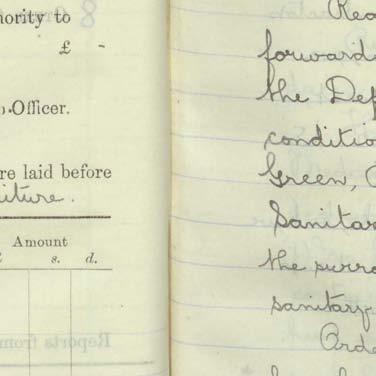 nority to
£ -
Officer.
re laid before
iture.
Amount
s. d.
Rea
forward
the Def
conditio
Green,
Sanitar
the surro
sanitary
Orde